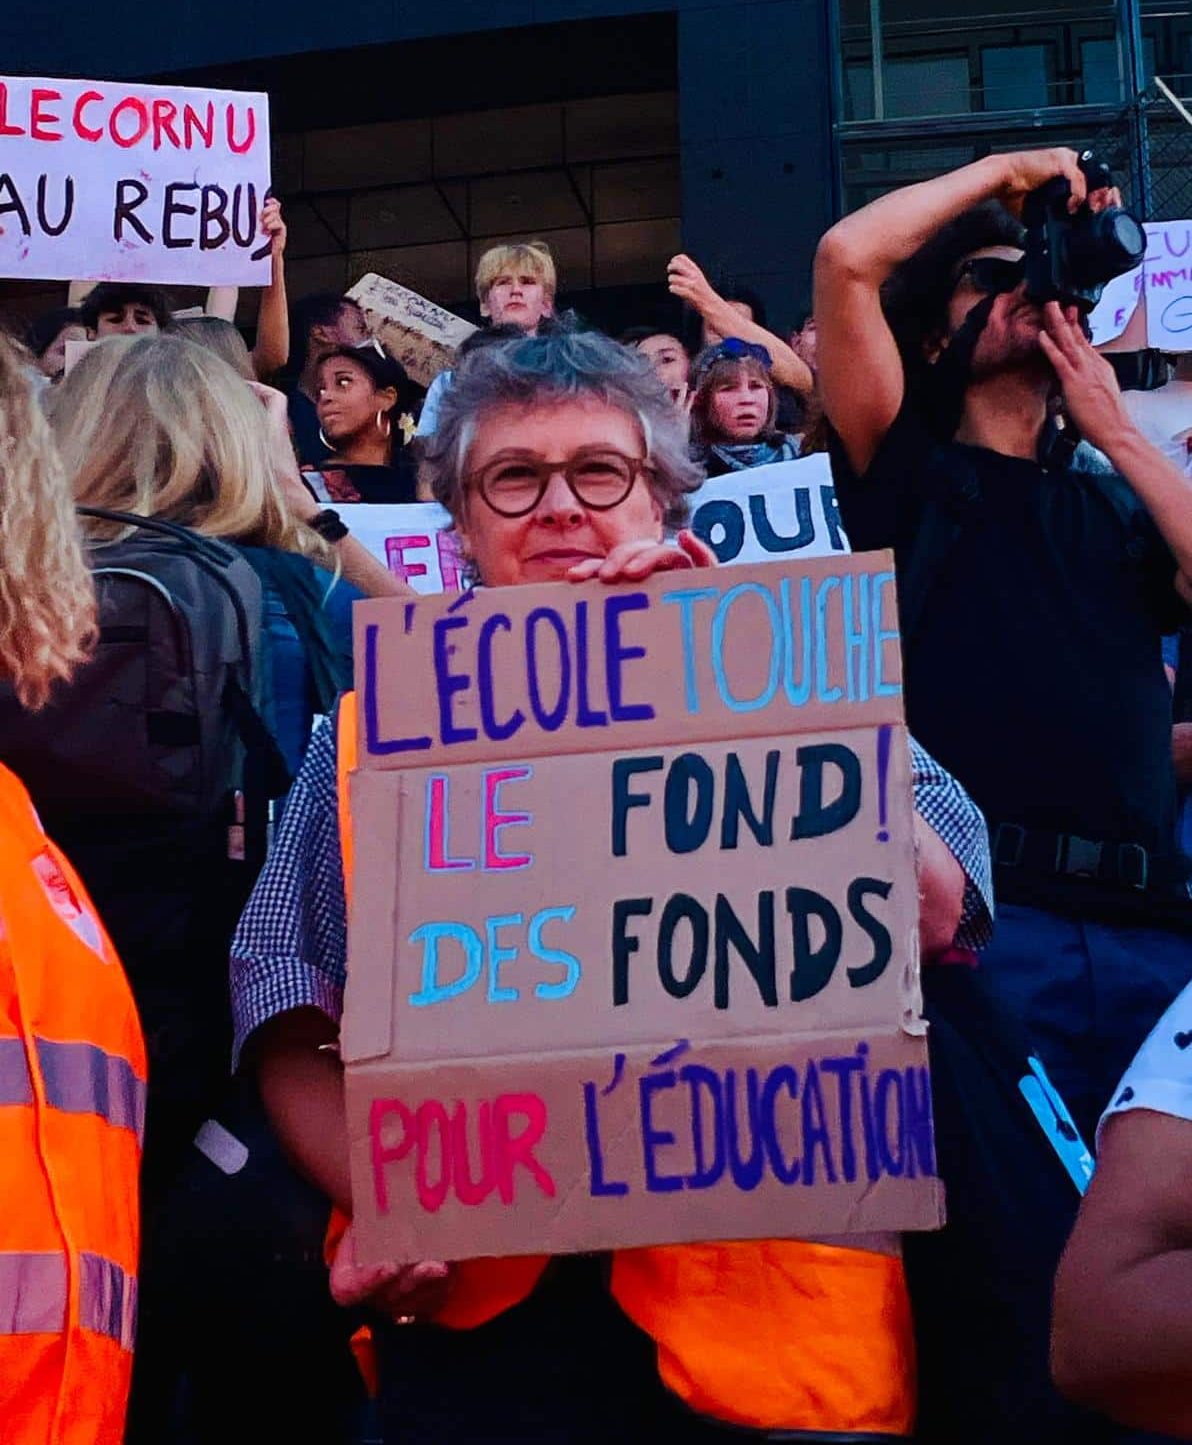 LECORNU
AU REBUS
L'ÉCOLE TOUCHE
LE FOND!
DES FONDS
POUR L'ÉDUCATION